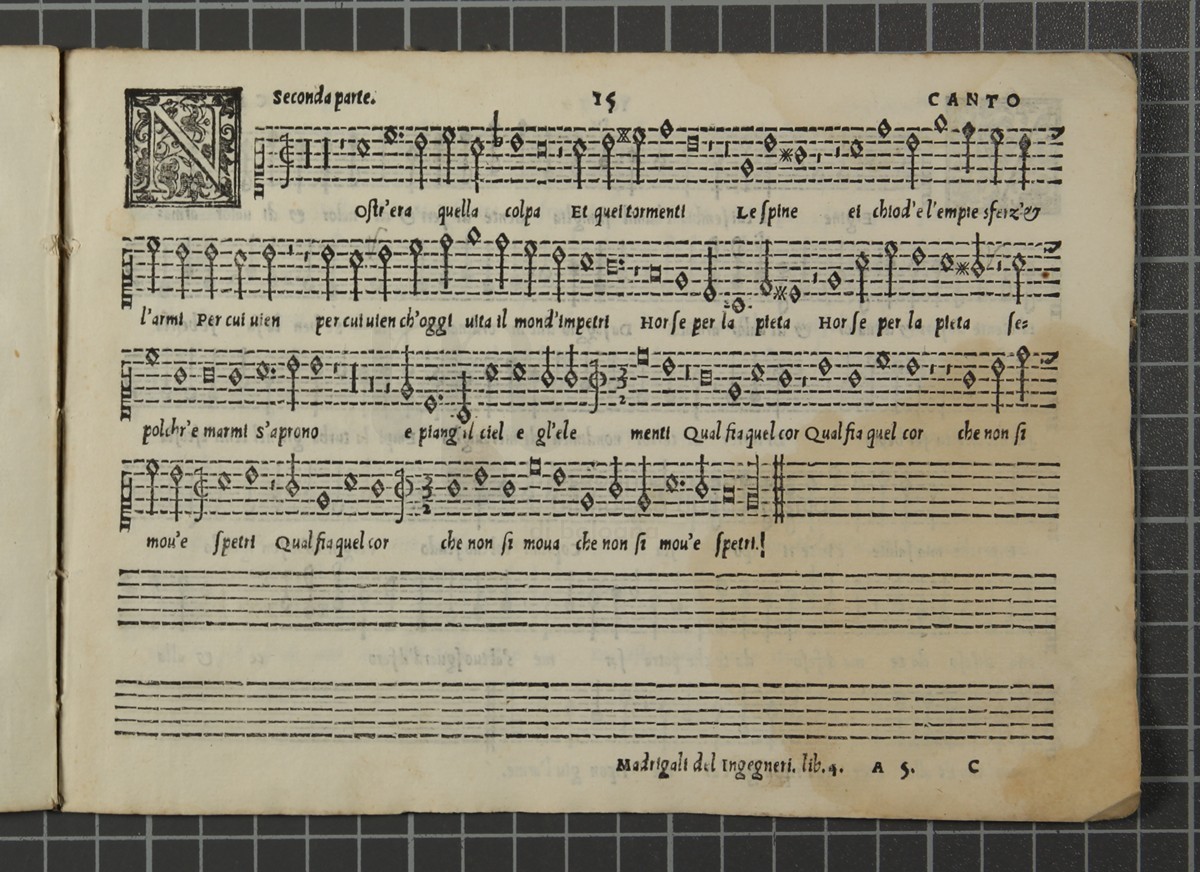 Seconda parte. 15 CANTO
NOstr'era quella colpa Et quei tormenti Le spine ei chiod'e l'empie sferz'&
l'armi Per cui uien per cui uien ch'oggi uita il mond'impetri Hor se per la pieta Hor se per la pieta se=
polchr'e marmi s'aprono e piang'il ciel e gl'ele menti Qual fia quel cor Qual fia quel cor che non si
mou'e spetri Qual fia quel cor che non si moua che non si mou'e spetri.!
Madrigali del Ingegneri. lib. 4. A 5. C